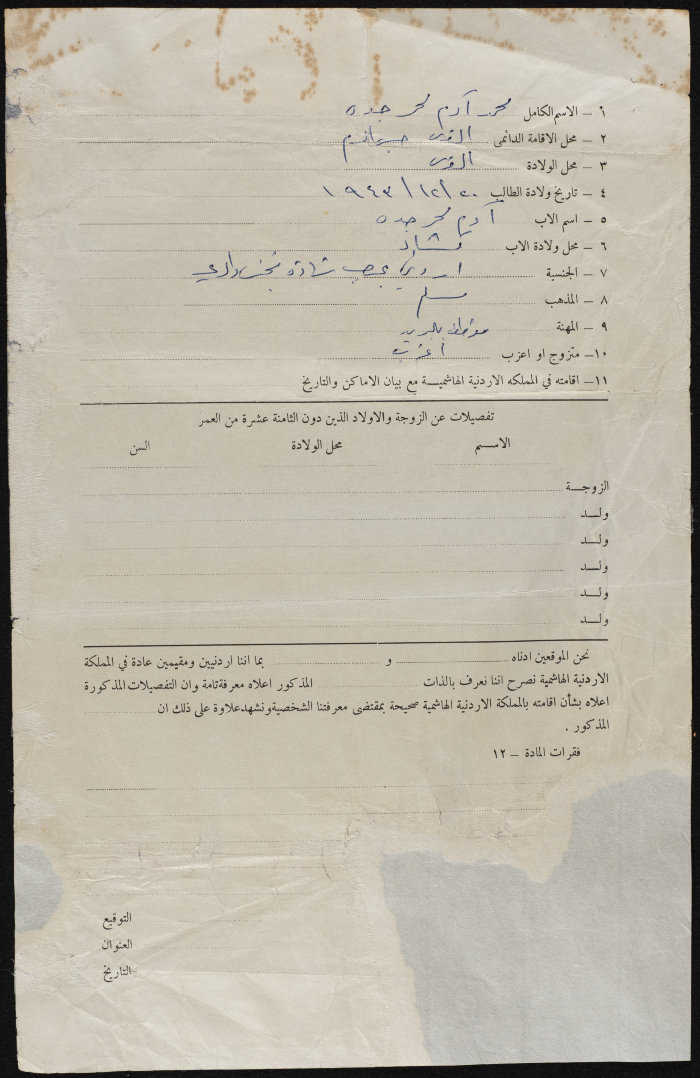 ١ – الاسم الكامل محمد آدم محمد جده
٢ – محل الاقامة الدائمى القدس
٣ – محل الولادة القدس
٤ – تاريخ ولادة الطالب ٢٠/١٢/١٩٤٣
٥ – اسم الاب آدم محمد جده
٦ – محل ولادة الاب تشاد
٧ – الجنسية اردني بموجب شهادة تجنس والدي
٨ – المذهب مسلم
٩ – المهنة موظف بالبريد
١٠– متزوج او اعزب أعزب
١١– اقامته في المملكه الاردنية الهاشميـة مع بيان الاماكن والتاريخ
تفصيلات عن الزوجة والاولاد الذين دون الثامنة عشرة من العمر
الاسـم محل الولادة السن
الزوجـة
ولـد
ولـد
ولـد
ولـد
ولـد
نحن الموقعين ادناه و بما اننا اردنيين ومقيمين عادة في المملكة
الاردنية الهاشمية نصرح اننا نعرف بالذات المذكور اعلاه معرفة تامة وان التفصيلات المذكورة
اعلاه بشأن اقامته بالمملكة الاردنية الهاشمية صحيحة بمقتضى معرفتنا الشخصية ونشهد علاوة على ذلك ان
المذكور .
فقرات المادة – ١٢
التوقيع
العنوان
التاريخ